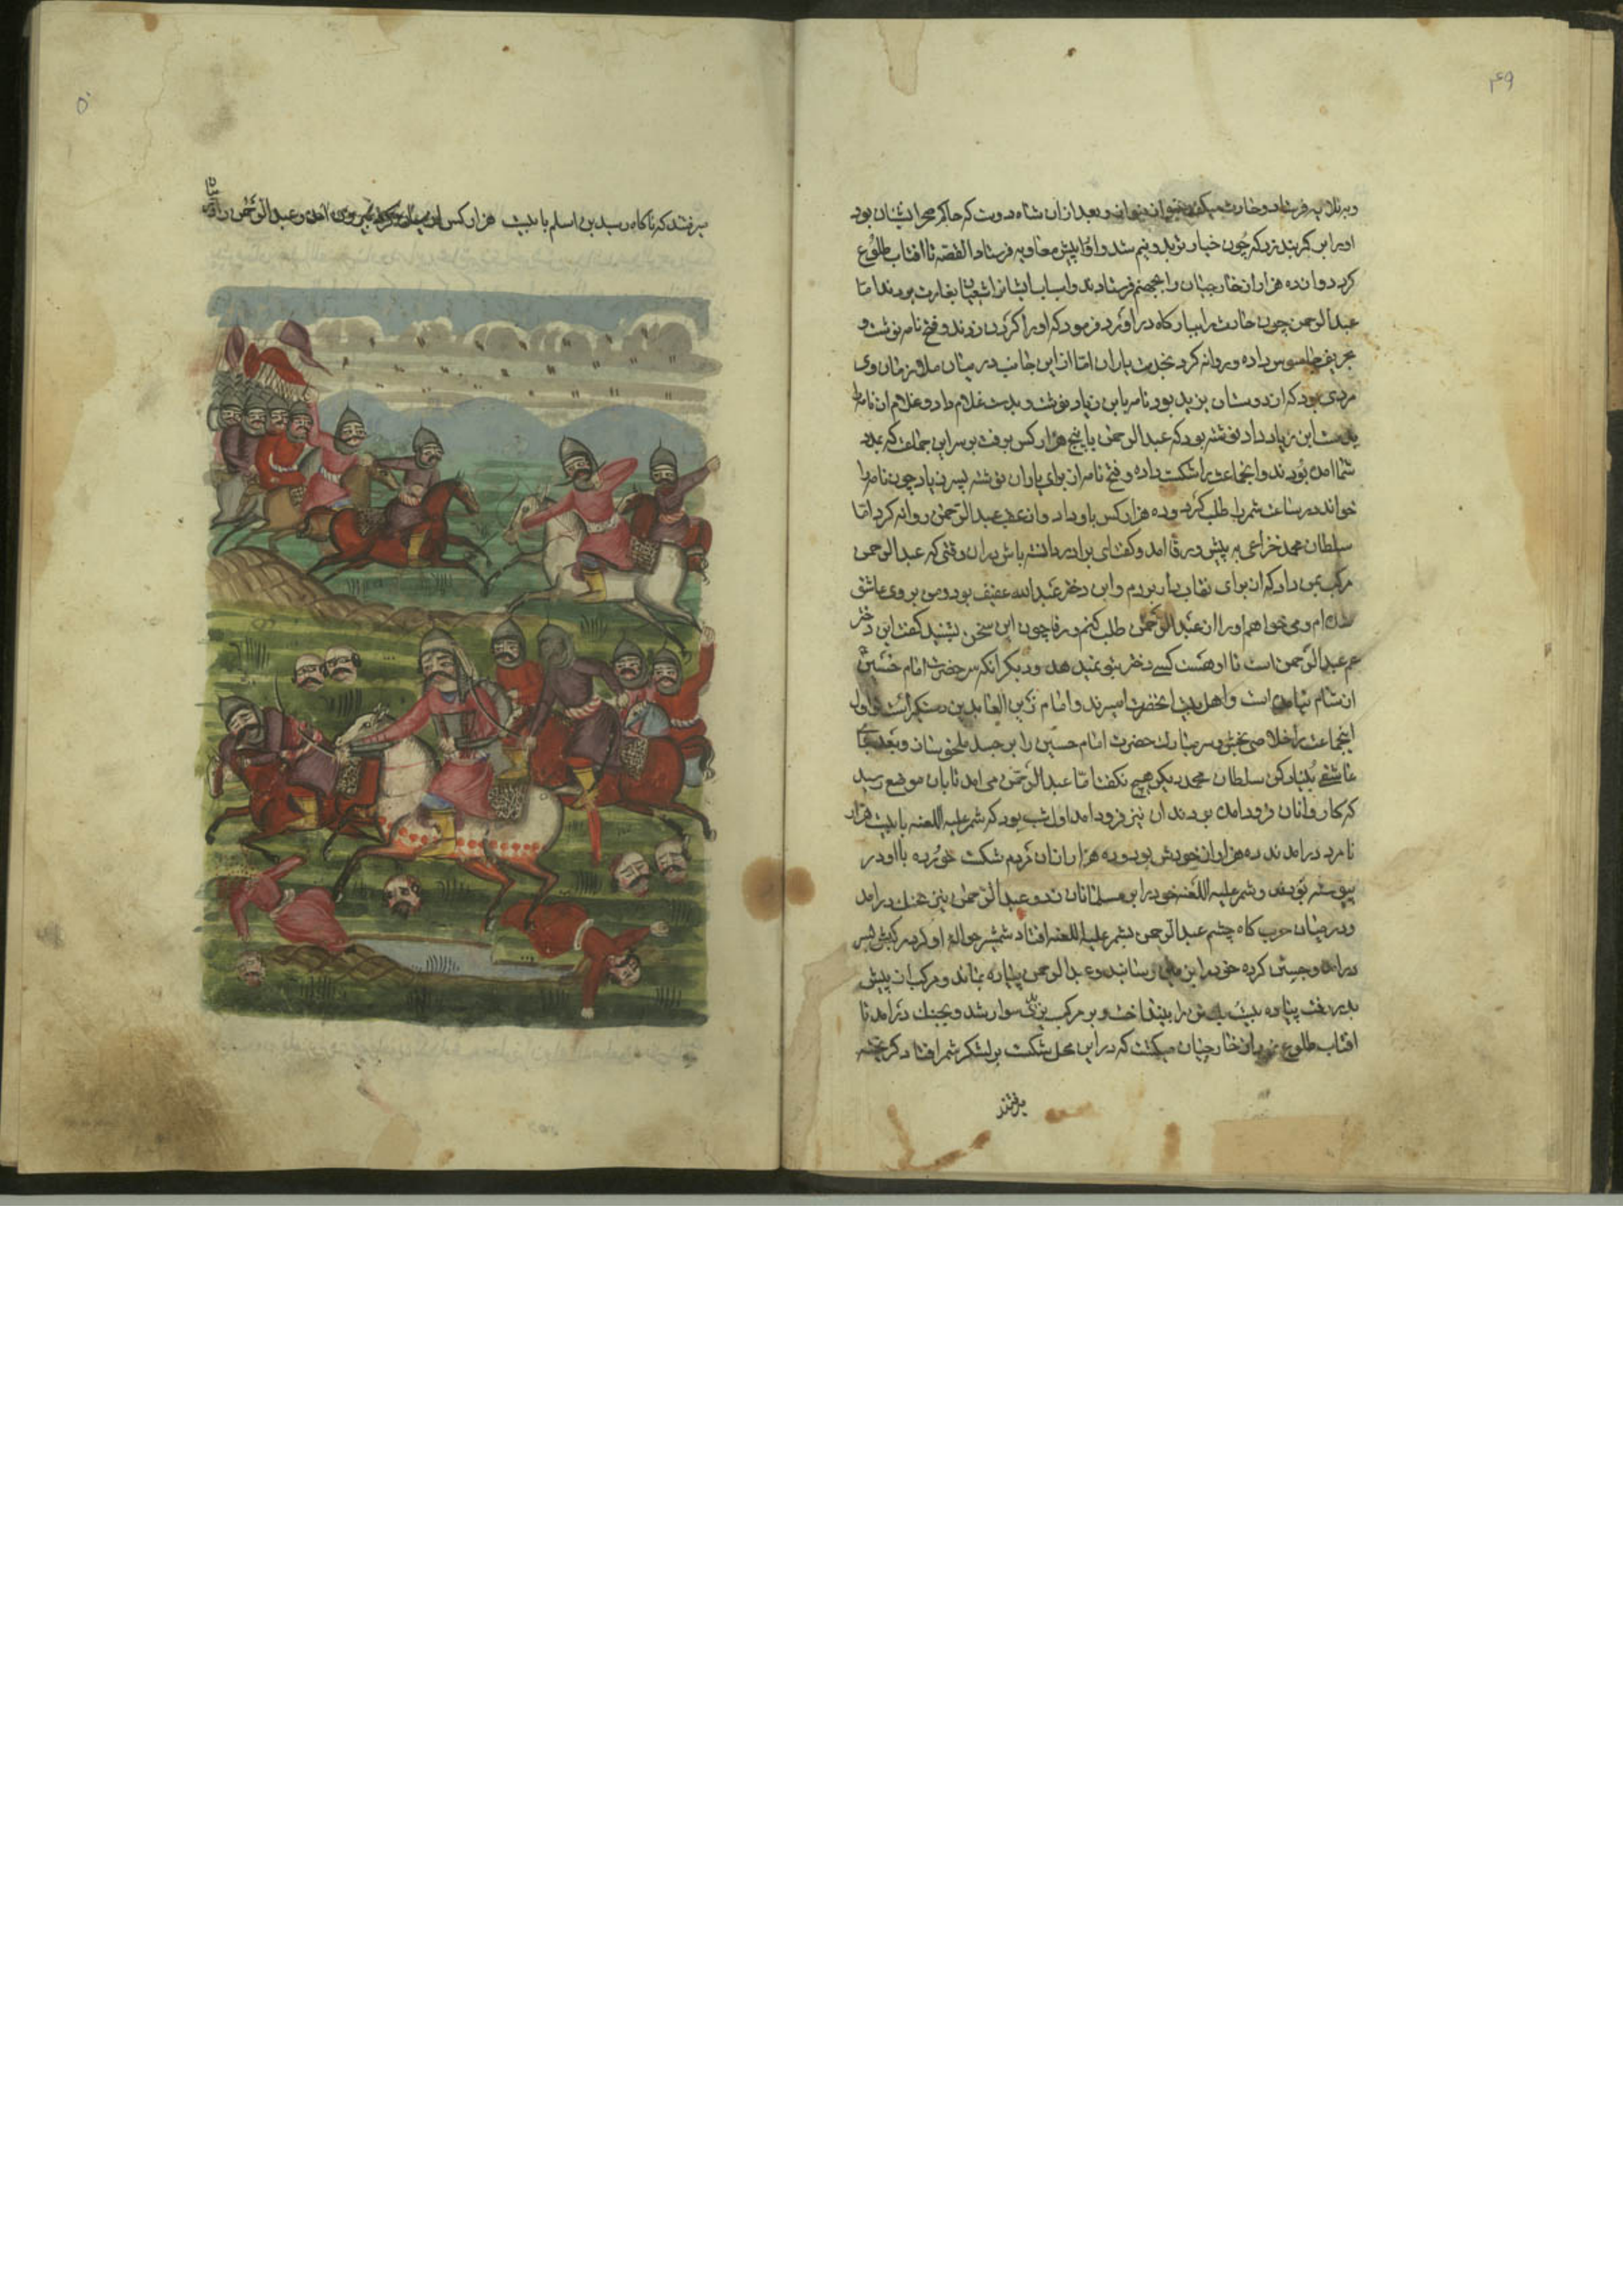 ۴۹
او را بر کمربند زد که چون خیار تر بدو نیم شد و او را پیش معاویه فرستاد القصه تا افتاب طلوع
کرد دوازده هزار از خارجیان را بجهنم فرستادند و اسباب ایشانرا شیعیان بغارت بردند اما
عبدالرحمن چون حارث را ببارکاه در اورد فرمود که او را کردن زدند و فتح نامه نوشت و
بحریف جاسوس داده و روانه کرد بخدمت یاران اما از این جانب در میان ملازمان وی
مردی بود که از دوستان یزید بود نامه بابن زیاد نوشت و بدست غلام داد و غلام ان نامه را
بدست ابن زیاد داد نوشته بود که عبدالرحمن با پنج هزار کس برفت بر سر این جماعت که بمدد
شما امده بودند و انجماعت را شکست داده و فتح نامه از برای یاران نوشته پسر زیاد چون نامه را
خواند در ساعت شمر را طلب کرد و ده هزار کس باو داد و از عقب عبدالرحمن روانه کرد اما
سلطان محمد خزاعی به پیش ورقا امد و کفت ای برادر دانسته باش در ان وقتی که عبدالرحمن
مرکب بمن داد که از برای نقاب دار بردم و این دختر عبدالله عفیف بود و من بر وی عاشق
شده ام و می خواهم او را از عبدالرحمن طلب کنم ورقا چون این سخن بشنید کفت این دختر
عم عبدالرحمن است تا او هست کسی دختر بتو نمیدهد و دیکر انکه سر حضرت امام حسین
از شام نیامده است و اهل بیت انحضرت اسیرند و امام زین العابدین دستکیر است تو اول
اینجماعت را خلاصی بخش و سر مبارک حضرت امام حسین را بر جسد ملحق ساز و بعد جای
عاشقی بنیاد کن سلطان محمد دیکر هیچ نکفت اما عبدالرحمن می امد تا بان موضع رسید
که کاروانان فرود امده بودند ان نیز فرود امد اول شب بود که شمر علیه اللعنه با بیست هزار
نامرد در امدند ده هزار از خودش بود و ده هزار از ان مردم شکست خورده با او در
پیوسته بودند و شمر علیه اللعنه خود را بر مسلمانان زد و عبدالرحمن نیز بجنک در امد
و در میان حرب کاه چشم عبدالرحمن بشمر علیه اللعنه افتاد شمشیر حواله او کرد مرکبش بسر
در امد و جستن کرده خود را بر زمین رسانید و عبدالرحمن پیاده بماند و مرکب از پیش
بدر رفت پیاده بیست یک تن را بینداخت و بر مرکب یزکی سوار شد و بجنک در امد تا
افتاب طلوع نمود از خارجیان میکشت که در این محل شکست بر لشکر شمر افتاد کریخته
میرفتند
۵۰
میرفتند که ناکاه رسید بن اسلم با بیست هزار کس از امده و عبدالرحمن را